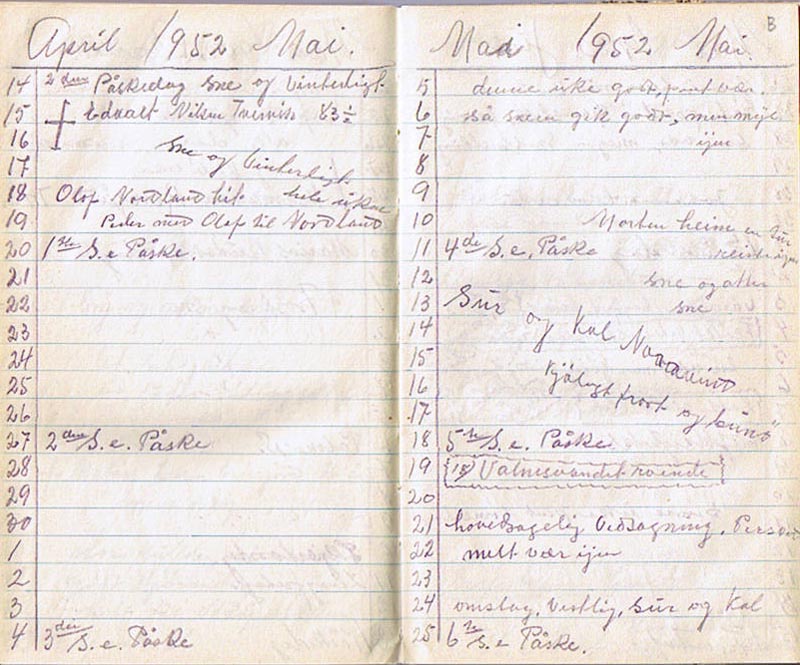 April 1952 Mai.
14 2den Påskedag Sne og Vinterligt
15 Edvalt Nilsen 83½
16
17 Sne og Vinterligt
18 Olof Nordland hit. hele uken
19 Peder med Olof til Nordland
20 1ste S. e Påske.
21
22
23
24
25
26
27 2den S. e. Påske
28
29
30
1
2
3
4 3die S. e. Påske
Mai 1952 Mai. B
5 denne uke godt, pent vær.
6 Så sneen gik godt, men mye
7 ijen
8
9
10 Morten heime en tur
11 4de S. e. Påske
12 Sne og atter
13 Sur og Kal Sne
14 Noraavind
15
16 Kjøligt frost og
17
18 5te S. e. Påske
19 (18) Valnesvandet
20
21 hovedsagelig Vedsagning.
22 mildt vær ijen
23
24 omslag, Vestlig, Sur og Kal
25 6te S. e Påske.